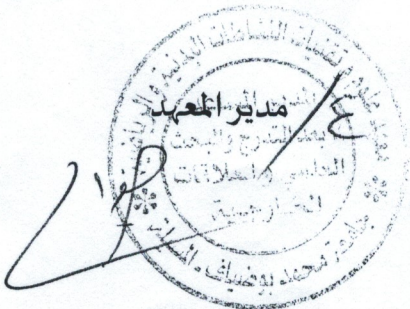 معهد علوم و تقنيات النشاطات البدنية و الرياضية
ع/ مدير المعهد
بعد التدرج والبحث
العلمي والعلاقات
الخارجية
جامعة محمد بوضياف - المسيلة